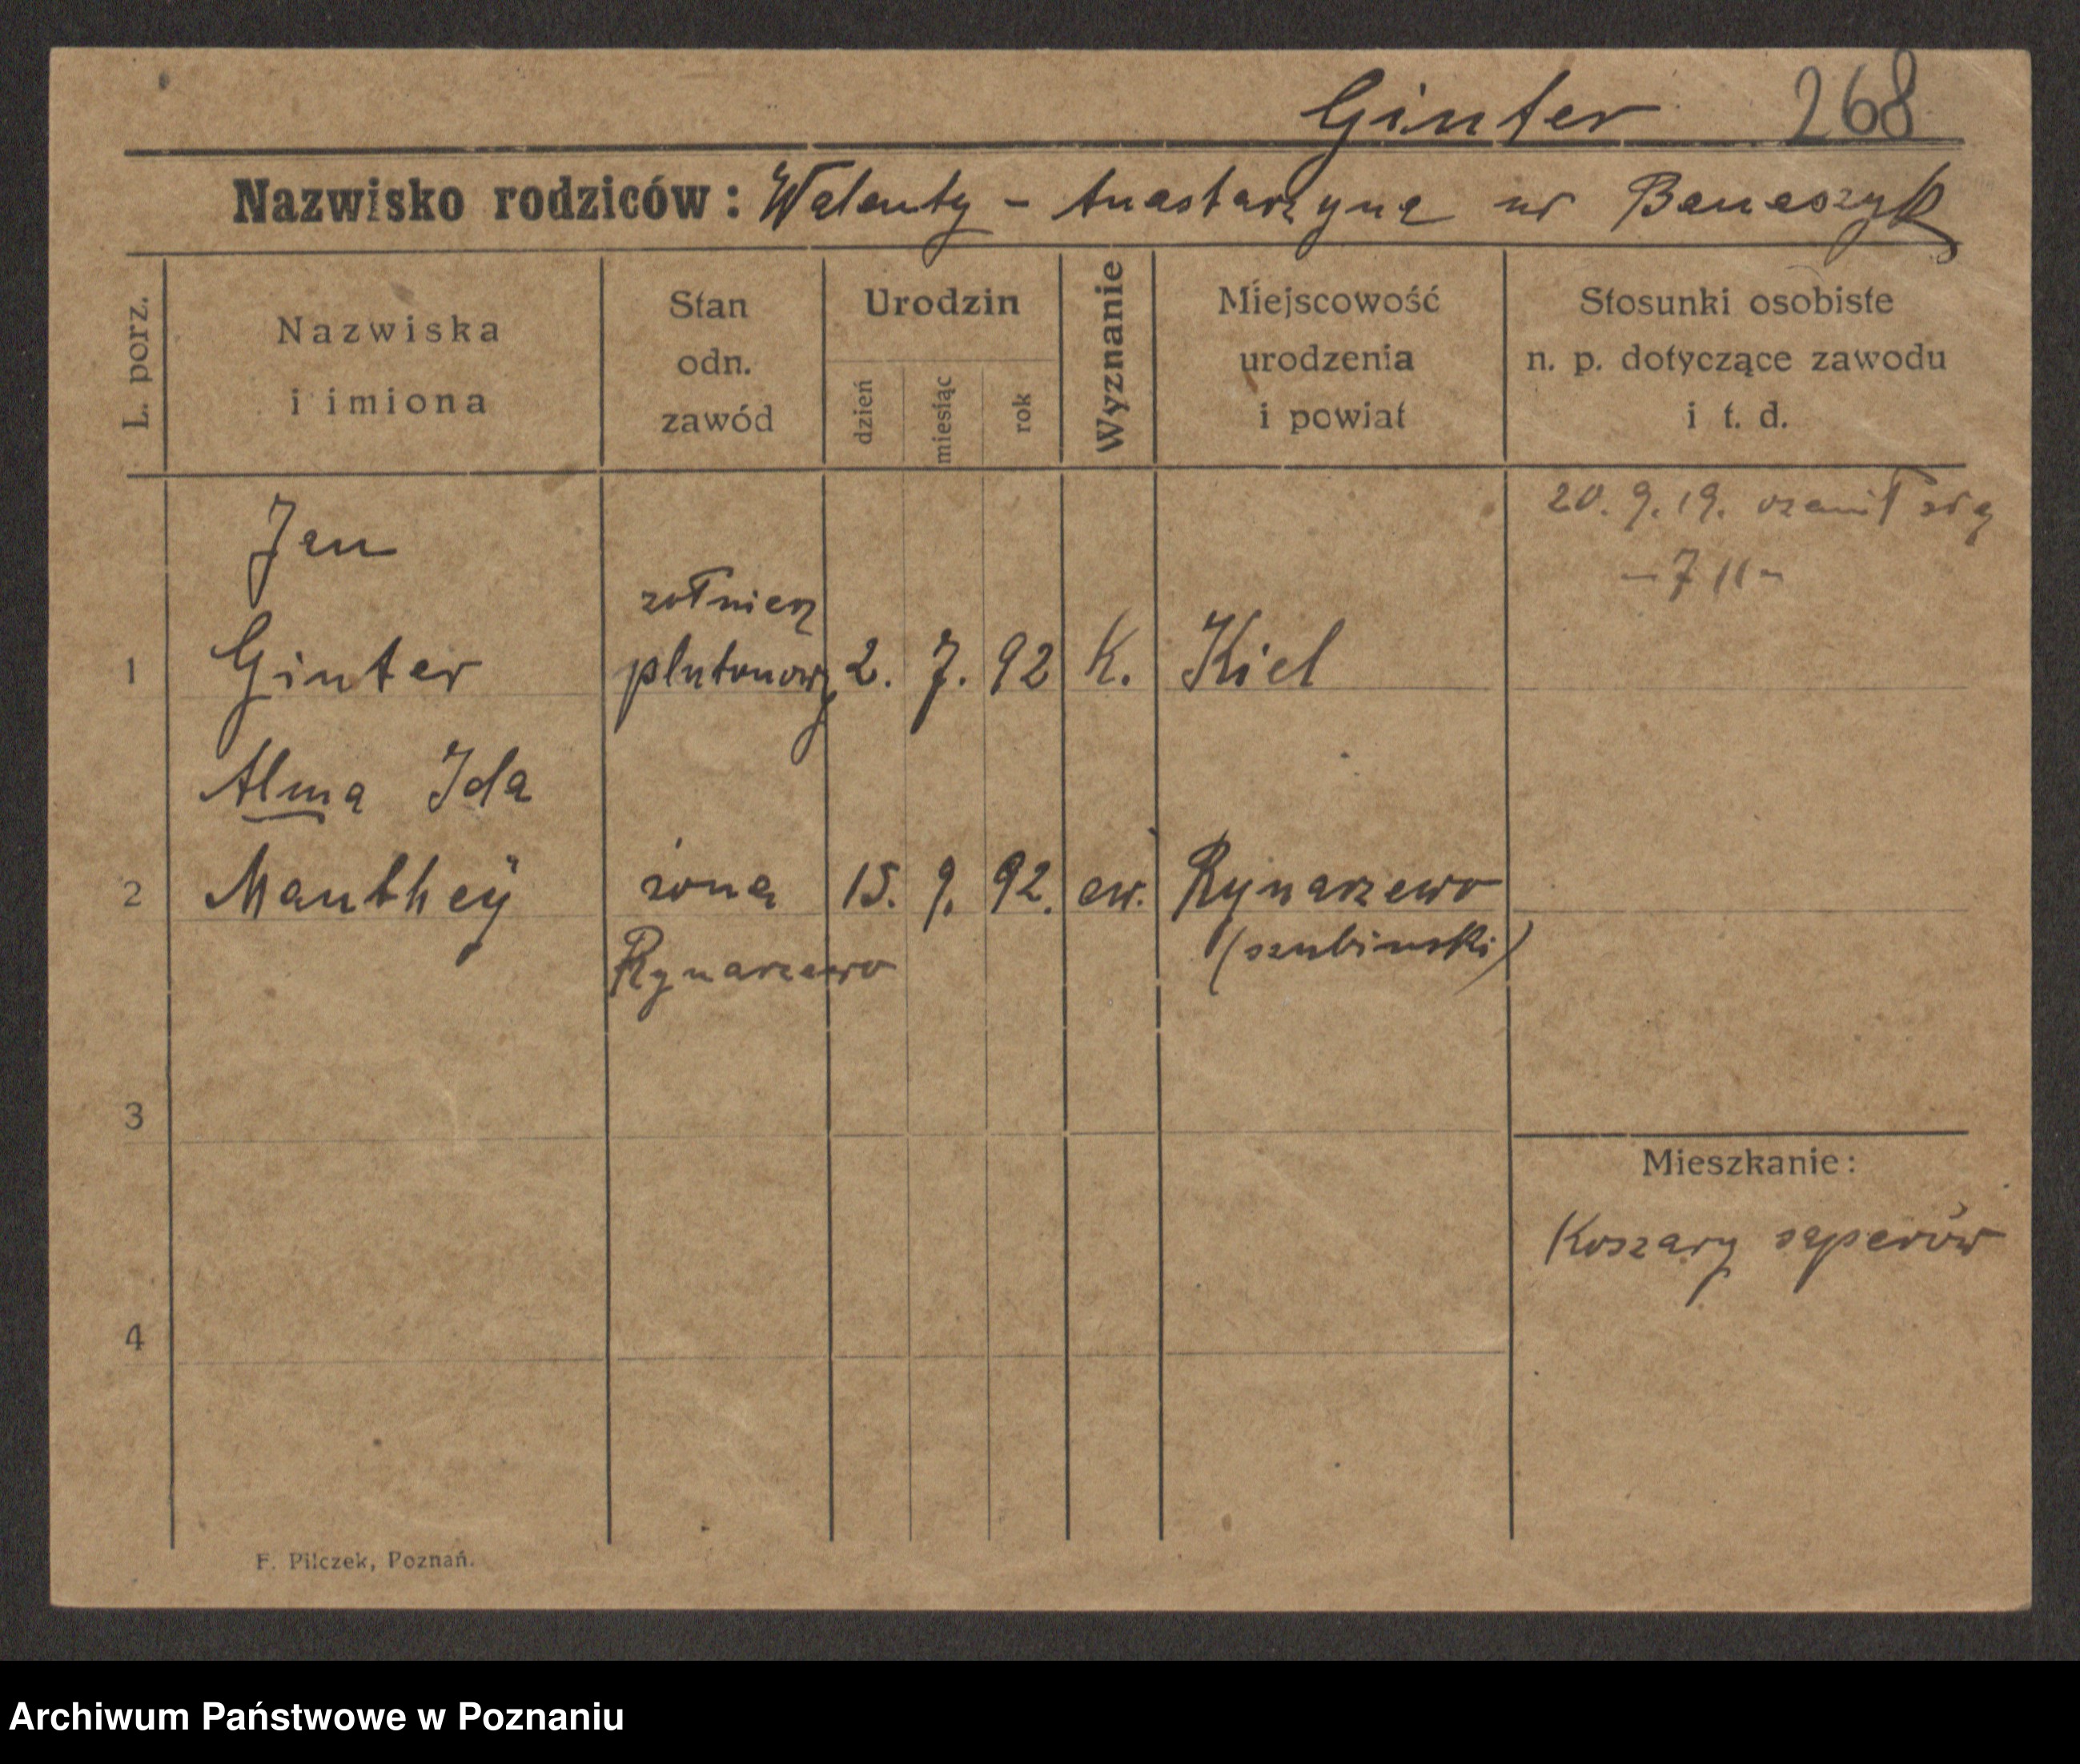 Ginter 268
Nazwisko rodziców: Walenty - Anastazyna ur Banaszyk
L. porz.
Nazwiska
i imiona
Stan
odn.
zawód
Urodzin
dzień
miesiąc
rok
Wyznanie
Miejscowość
urodzenia
i powiat
Stosunki osobiste
n. p. dotyczące zawodu
i t. d.
20. 9. 19. ożenił się
Jan
żołnierz
1 Ginter plutonowy 2. 7. 92 K. Kiel
Alma Ida
2 Manthey żona 15. 9. 92. ew. Rynarzewo
Rynarzewo (szubinski)
3
Mieszkanie:
Koszary saperów
4
F. Pilczek, Poznań.
Archiwum Państwowe w Poznaniu